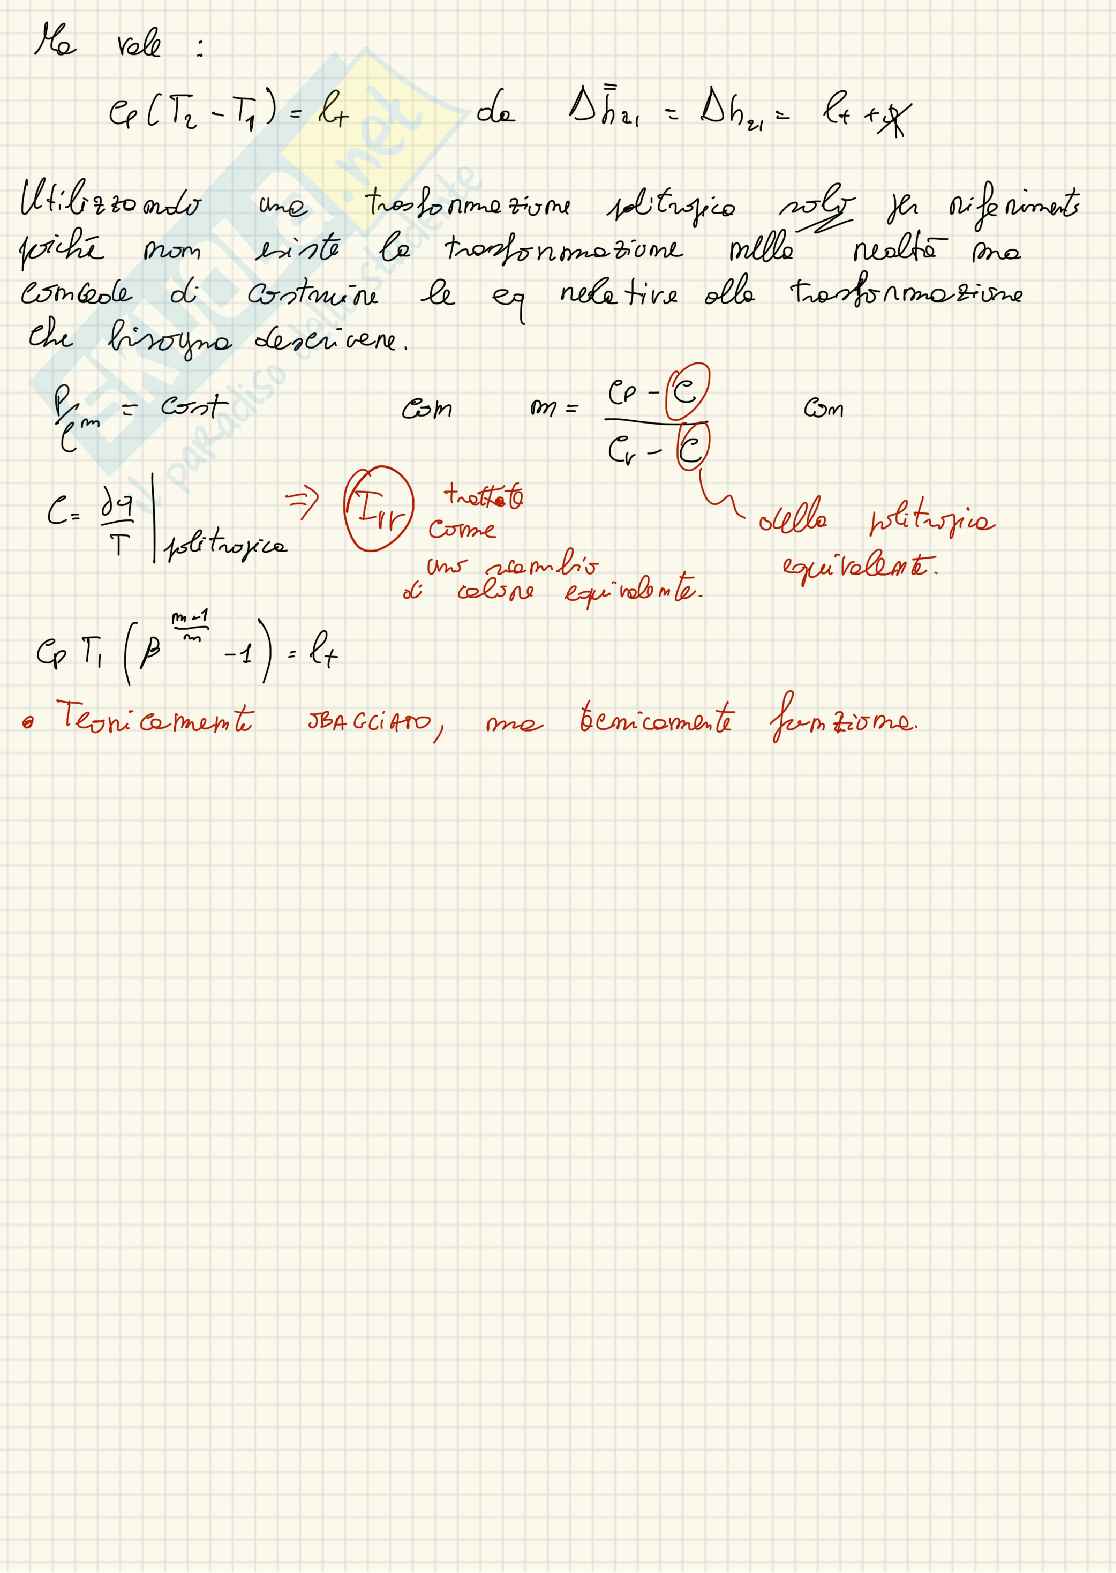 Ma vale :
Cp(T₂ - T₁) = lt da Δh̿₂₁ = Δh₂₁ = lt + q
Utilizzando una trasformazione politropica solo per riferimento
poiché non esiste la trasformazione nella realtà ma
concede di costruire le eq relative alla trasformazione
che bisogna descrivere.
P/ρᵐ = cost con m = (Cp - C)/(Cv - C) con
C = ∂q/T |politropica ⇒ Irr trattate come uno scambio di calore equivalente.
della politropica equivalente.
Cp T₁ (β^((m-1)/m) - 1) = lt
• Teoricamente SBAGLIATO, ma tecnicamente funziona.
skuola.net
il paradiso dello studente